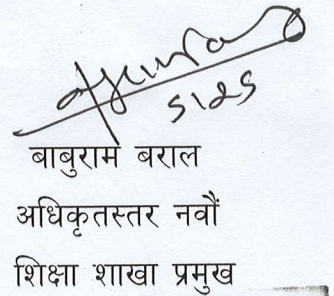 5125
बाबुराम बराल
अधिकृतस्तर नवौं
शिक्षा शाखा प्रमुख